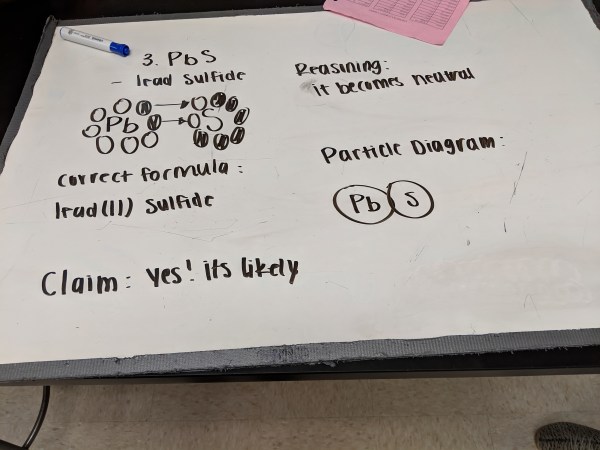 3. PbS
- lead sulfide
Pb S
correct formula:
lead(II) sulfide
Claim: yes! its likely
Reasining:
it becomes neutral
Particle Diagram:
Pb S